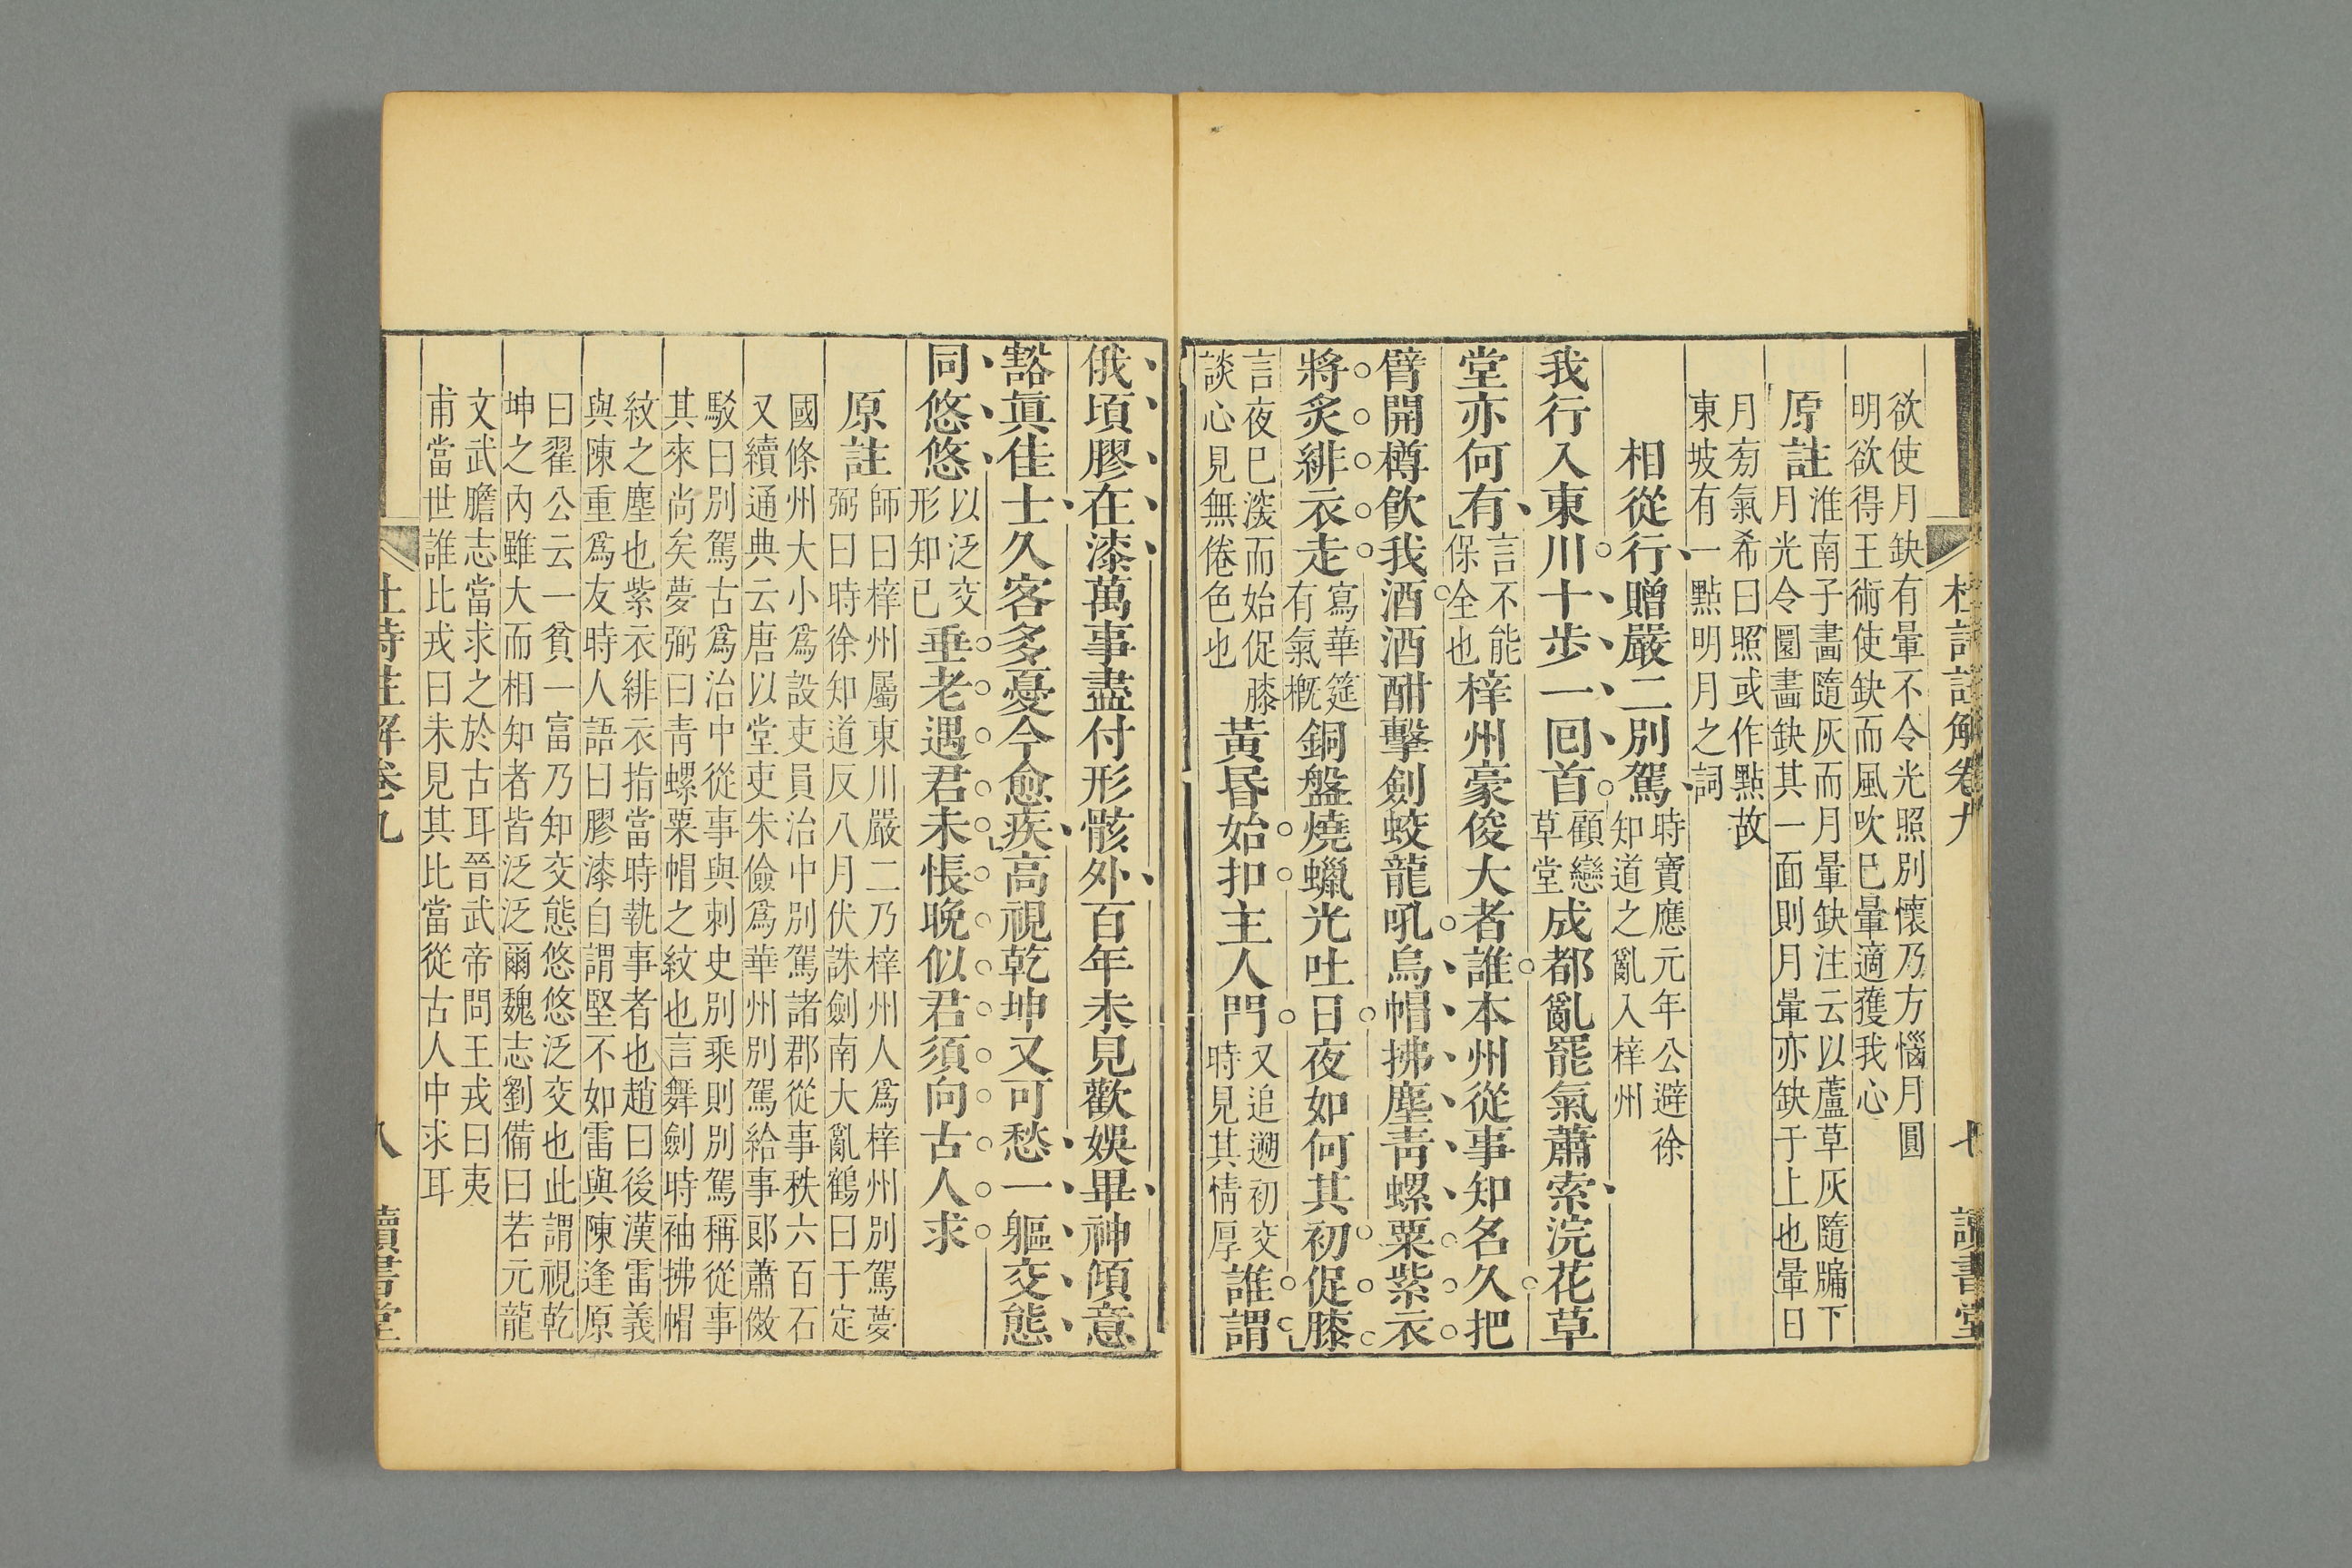 杜詩註解卷九 七 讀書堂
欲使月缺有暈不令光照別懷乃方惱月圓
明欲得王術使缺而風吹巳暈適獲我心
原註淮南子畫隨灰而月暈缺注云以蘆草灰隨牖下
月光令圜畫缺其一面則月暈亦缺于上也暈日
月旁氣希曰照或作點故
東坡有一點明月之詞
相從行贈嚴二別駕時寶應元年公避徐
知道之亂入梓州
我行入東川十步一回首顧戀
草堂成都亂罷氣蕭索浣花草
堂亦何有言不能
保全也梓州豪俊大者誰本州從事知名久把
臂開樽飲我酒酒酣擊劍蛟龍吼烏帽拂塵靑螺粟紫衣
將炙緋衣走寫華筵
有氣概銅盤燒蠟光吐日夜如何其初促膝
言夜巳深而始促膝
談心見無倦色也黃昏始扣主人門又追遡初交
時見其情厚誰謂
俄頃膠在漆萬事盡付形骸外百年未見歡娛畢神傾意
豁眞佳士久客多憂今愈疾高視乾坤又可愁一軀交態
同悠悠以泛交
形知已垂老遇君未恨晚似君須向古人求
原註師曰梓州屬東川嚴二乃梓州人爲梓州別駕夢
弼曰時徐知道反八月伏誅劍南大亂鶴曰于定
國條州大小爲設吏員治中別駕諸郡從事秩六百石
又續通典云唐以堂吏朱儉爲華州別駕給事郎蕭倣
駁曰別駕古爲治中從事與刺史別乘則別駕稱從事
其來尚矣夢弼曰靑螺粟帽之紋也言舞劍時袖拂帽
紋之塵也紫衣緋衣指當時執事者也趙曰後漢雷義
與陳重爲友時人語曰膠漆自謂堅不如雷與陳逢原
曰翟公云一貧一富乃知交態悠悠泛交也此謂視乾
坤之內雖大而相知者皆泛泛爾魏志劉備曰若元龍
文武膽志當求之於古耳晉武帝問王戎曰夷
甫當世誰比戎曰未見其比當從古人中求耳
杜詩註解卷九 八 讀書堂